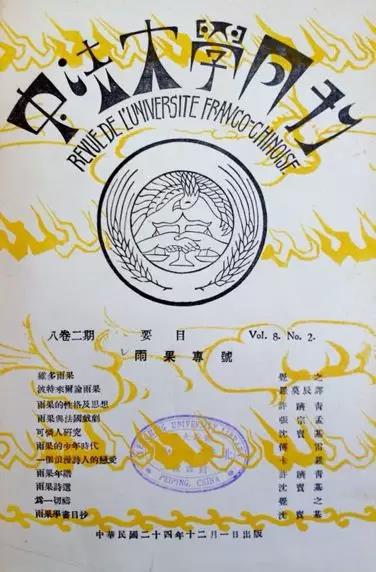 中法大學月刊
REVUE DE L'UNIVERSITE FRANCO-CHINOISE
八卷二期 要目 Vol. 8. No. 2.
雨果專號
維多雨果 覺之
波特來爾論雨果 羅莫辰譯
雨果的性格及思想 許躋青
雨果與法國戲劇 張宗孟
可憐人研究 沈寶基
雨果的少年時代 傅雷
一個浪漫詩人的戀愛
雨果年譜 許躋青
雨果詩選 沈寶基
爲一切禱 覺之
雨果學書目抄 沈寶基
PEIPING, CHINA
中華民國二十四年十二月一日出版